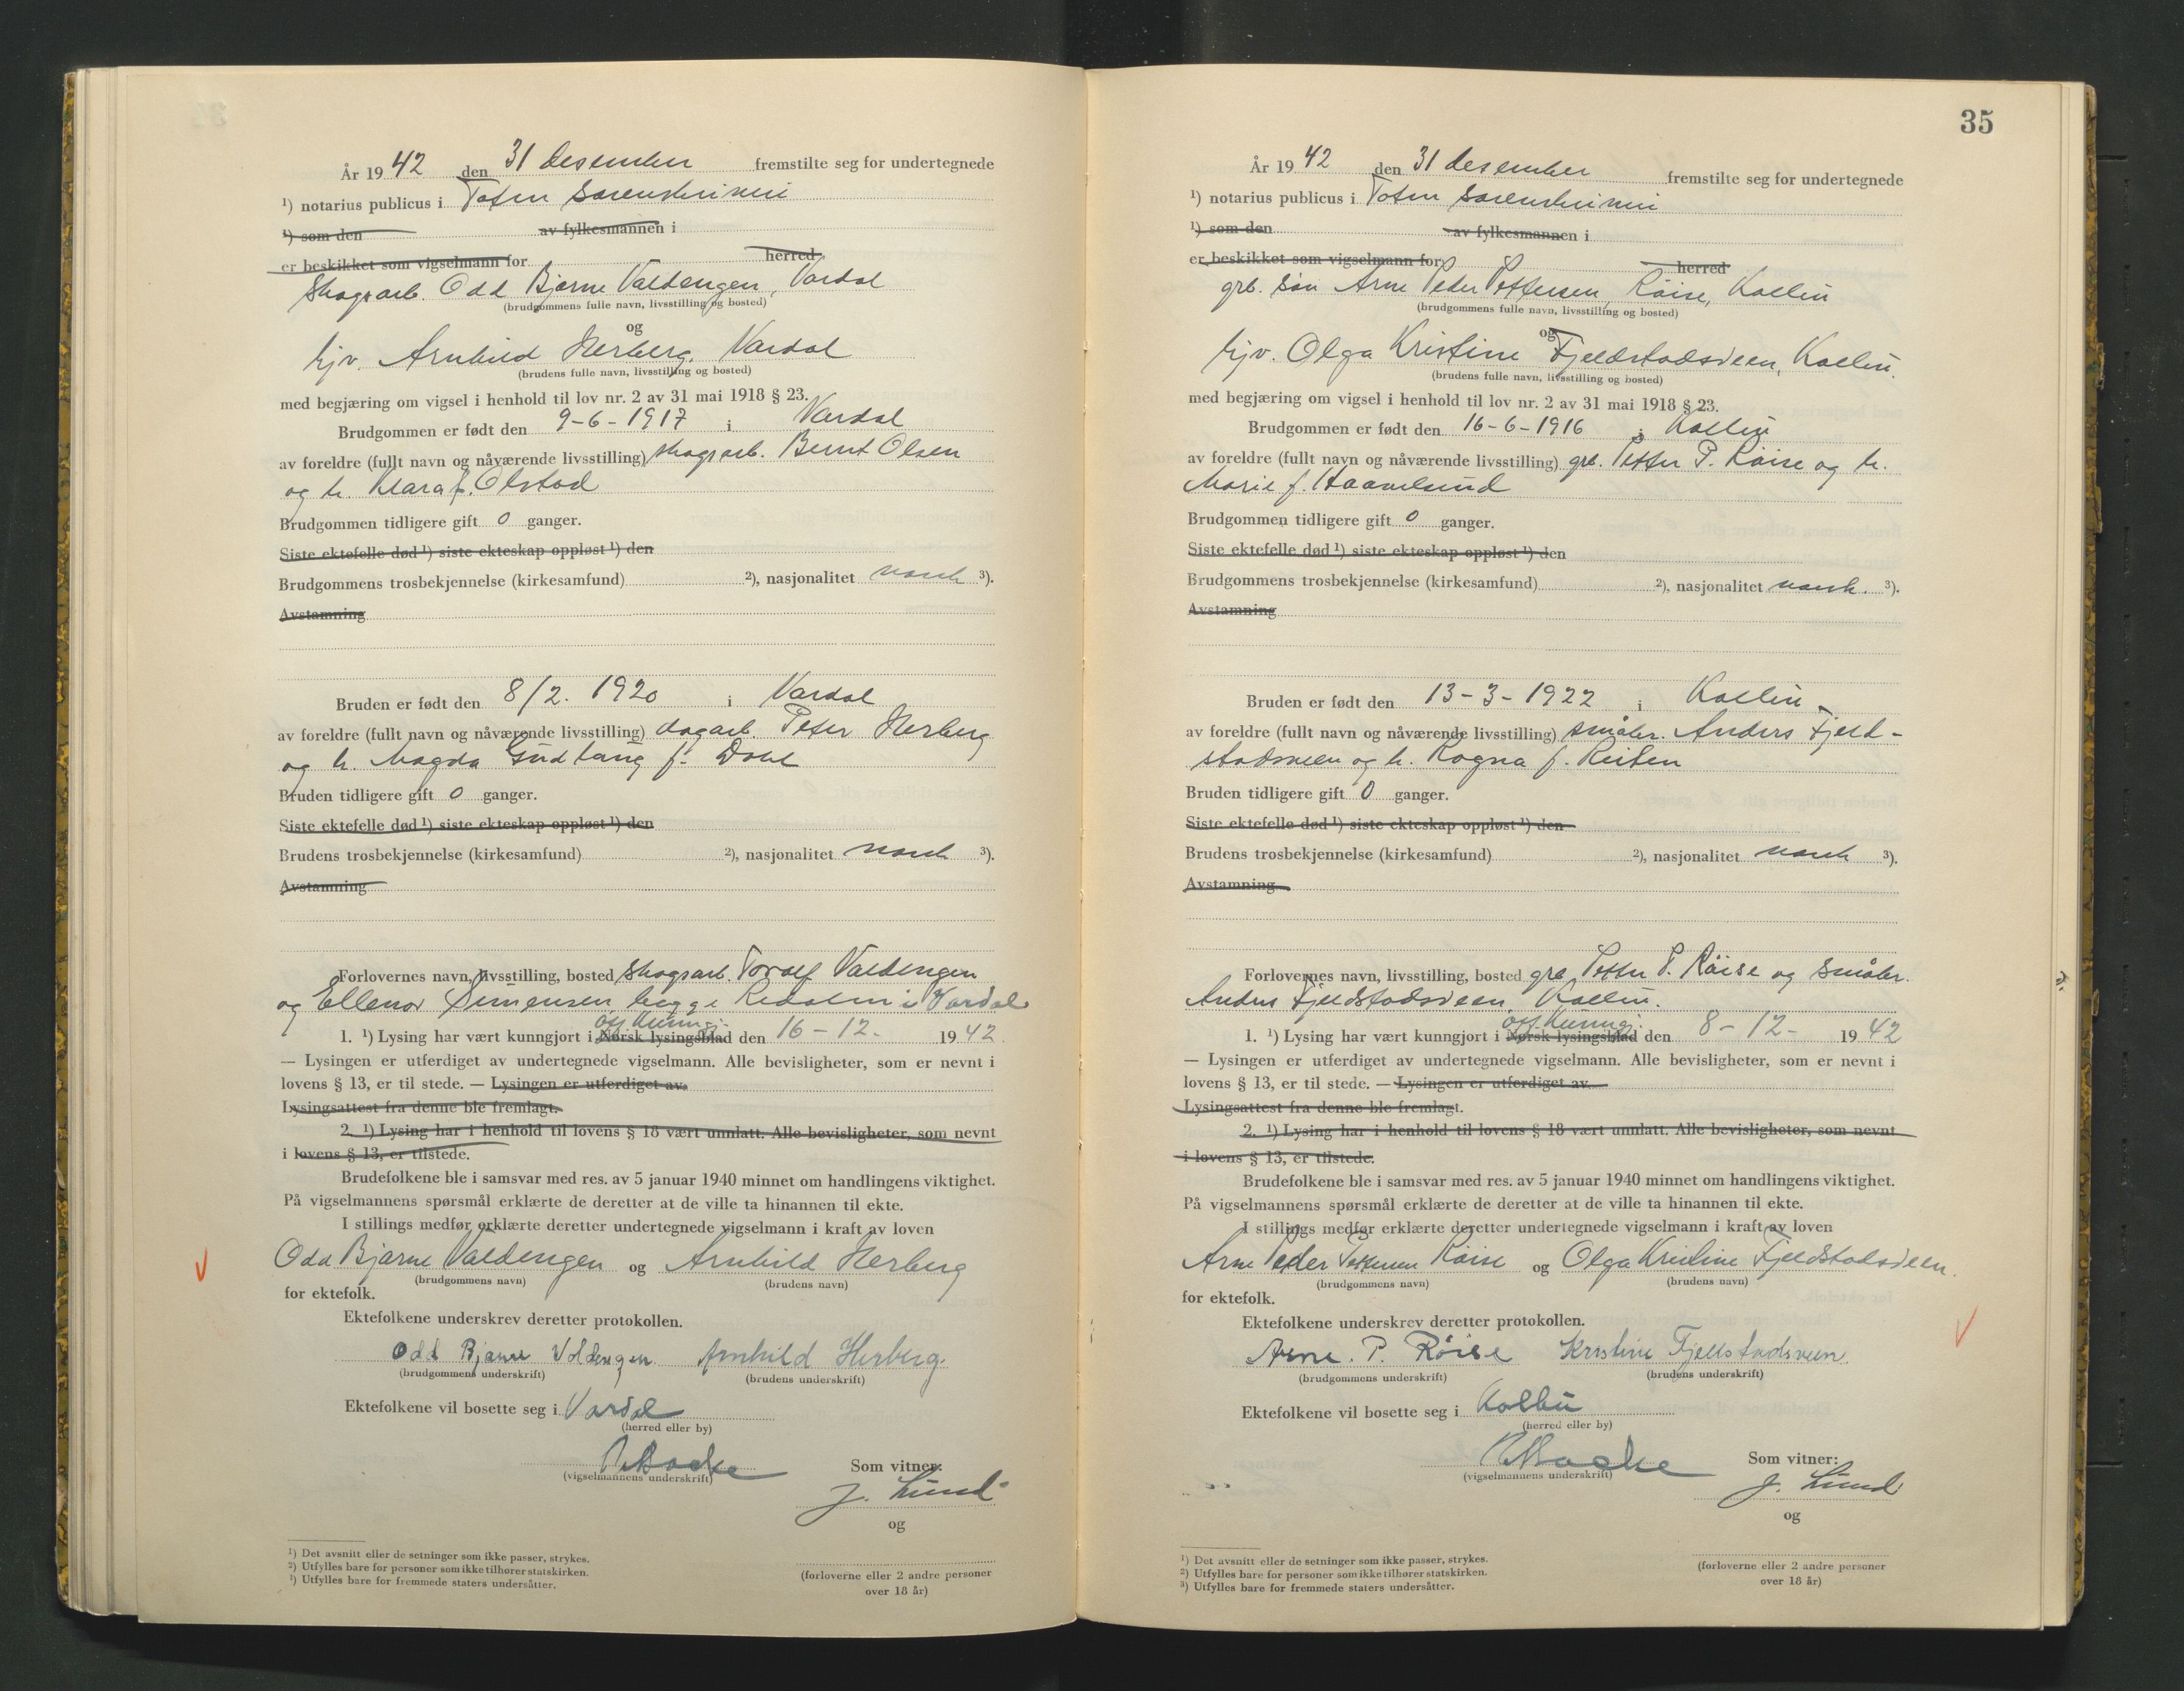 År 1942 den 31 desember fremstilte seg for undertegnede
¹) notarius publicus i Toten sorenskriveri
¹) som den av fylkesmannen i
er beskikket som vigselmann for herred
Skogsarb. Odd Bjarne Valdengen, Vardal
(brudgommens fulle navn, livsstilling og bosted)
og
hjv. Arnhild Herberg, Vardal
(brudens fulle navn, livsstilling og bosted)
med begjæring om vigsel i henhold til lov nr. 2 av 31 mai 1918 § 23.
Brudgommen er født den 9-6-1917 i Vardal
av foreldre (fullt navn og nåværende livsstilling) skogsarb. Bernt Olsen
og h. Klara f. Olstad
Brudgommen tidligere gift 0 ganger.
Siste ektefelle død ¹) siste ekteskap oppløst ¹) den
Brudgommens trosbekjennelse (kirkesamfund) ²), nasjonalitet norsk ³).
Avstamning
Bruden er født den 8/2. 1920 i Vardal
av foreldre (fullt navn og nåværende livsstilling) dagarb. Peter Herberg
og h. Magda Gudlaug f. Dahl
Bruden tidligere gift 0 ganger.
Siste ektefelle død ¹) siste ekteskap oppløst ¹) den
Brudens trosbekjennelse (kirkesamfund) ²), nasjonalitet norsk ³).
Avstamning
Forlovernes navn, livsstilling, bosted skogsarb. Toralf Valdengen
og Ellenor Simensen begge Redalen i Vardal
1. ¹) Lysing har vært kunngjort i Norsk lysingsblad off. kunngj. den 16-12- 1942.
— Lysingen er utferdiget av undertegnede vigselmann. Alle bevisligheter, som er nevnt i
lovens § 13, er til stede. — Lysingen er utferdiget av
Lysingsattest fra denne ble fremlagt.
2. ¹) Lysing har i henhold til lovens § 18 vært unnlatt. Alle bevisligheter, som nevnt
i lovens § 13, er tilstede.
Brudefolkene ble i samsvar med res. av 5 januar 1940 minnet om handlingens viktighet.
På vigselmannens spørsmål erklærte de deretter at de ville ta hinannen til ekte.
I stillings medfør erklærte deretter undertegnede vigselmann i kraft av loven
Odd Bjarne Valdengen og Arnhild Herberg
(brudgommens navn) (brudens navn)
for ektefolk.
Ektefolkene underskrev deretter protokollen.
Odd Bjarne Voldengen Arnhild Herberg.
(brudgommens underskrift) (brudens underskrift)
Ektefolkene vil bosette seg i Vardal
(herred eller by)
(vigselmannens underskrift) Som vitner:
J. Lund
og
¹) Det avsnitt eller de setninger som ikke passer, strykes.
²) Utfylles bare for personer som ikke tilhører statskirken.
³) Utfylles bare for fremmede staters undersåtter.
(forloverne eller 2 andre personer
over 18 år)
35
År 1942 den 31 desember fremstilte seg for undertegnede
¹) notarius publicus i Toten sorenskriveri
¹) som den av fylkesmannen i
er beskikket som vigselmann for herred
grb. søn Arne Peder Pettersen Röise, Kolbu
(brudgommens fulle navn, livsstilling og bosted)
og
hjv. Olga Kristine Fjeldstadsveen, Kolbu.
(brudens fulle navn, livsstilling og bosted)
med begjæring om vigsel i henhold til lov nr. 2 av 31 mai 1918 § 23.
Brudgommen er født den 16-6-1916 i Kolbu
av foreldre (fullt navn og nåværende livsstilling) grb. Petter P. Röise og h.
Marie f. Haavelsrud
Brudgommen tidligere gift 0 ganger.
Siste ektefelle død ¹) siste ekteskap oppløst ¹) den
Brudgommens trosbekjennelse (kirkesamfund) ²), nasjonalitet norsk. ³).
Avstamning
Bruden er født den 13-3-1922 i Kolbu
av foreldre (fullt navn og nåværende livsstilling) småbr. Anders Fjeld-
stadsveen og h. Ragna f. Reiten
Bruden tidligere gift 0 ganger.
Siste ektefelle død ¹) siste ekteskap oppløst ¹) den
Brudens trosbekjennelse (kirkesamfund) ²), nasjonalitet norsk ³).
Avstamning
Forlovernes navn, livsstilling, bosted grb. Petter P. Röise og småbr.
Anders Fjeldstadsveen Kolbu.
1. ¹) Lysing har vært kunngjort i Norsk lysingsblad off. kunngj. den 8-12- 1942
— Lysingen er utferdiget av undertegnede vigselmann. Alle bevisligheter, som er nevnt i
lovens § 13, er til stede. — Lysingen er utferdiget av
Lysingsattest fra denne ble fremlagt.
2. ¹) Lysing har i henhold til lovens § 18 vært unnlatt. Alle bevisligheter, som nevnt
i lovens § 13, er tilstede.
Brudefolkene ble i samsvar med res. av 5 januar 1940 minnet om handlingens viktighet.
På vigselmannens spørsmål erklærte de deretter at de ville ta hinannen til ekte.
I stillings medfør erklærte deretter undertegnede vigselmann i kraft av loven
Arne Peder Pettersen Röise og Olga Kristine Fjeldstadsveen.
(brudgommens navn) (brudens navn)
for ektefolk.
Ektefolkene underskrev deretter protokollen.
Arne. P. Röise Kristine Fjellstadsveen.
(brudgommens underskrift) (brudens underskrift)
Ektefolkene vil bosette seg i Kolbu
(herred eller by)
(vigselmannens underskrift) Som vitner:
J. Lund
og
¹) Det avsnitt eller de setninger som ikke passer, strykes.
²) Utfylles bare for personer som ikke tilhører statskirken.
³) Utfylles bare for fremmede staters undersåtter.
(forloverne eller 2 andre personer
over 18 år)